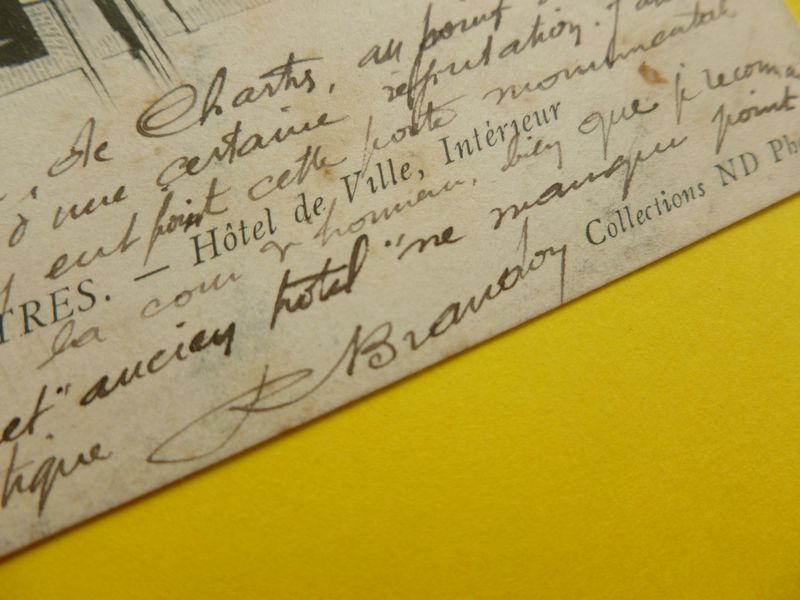 de Chartres, au point
d'une certaine réputation.
eut point cette porte monumentale
TRES. — Hôtel de Ville, Intérieur
la cour d'honneur, bien que je recomm
et "ancien hôtel" ne manque point
Collections ND Pho
tique Brandoy